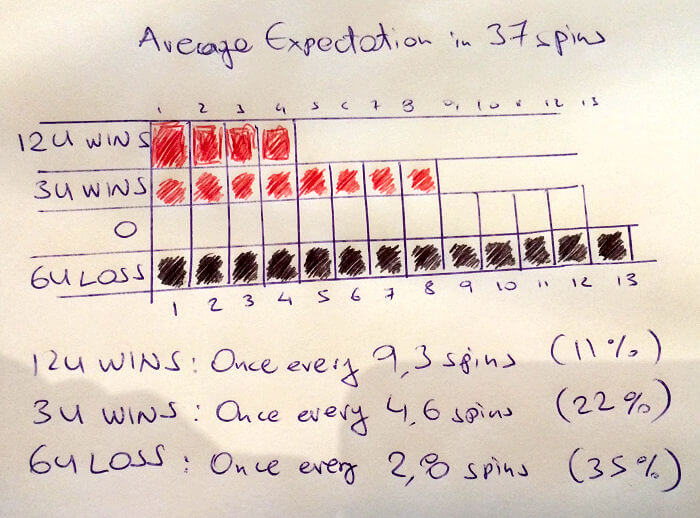 Average Expectation in 37 spins
1 2 3 4 5 6 7 8 9 10 11 12 13
12U WINS
3U WINS
0
6U LOSS
1 2 3 4 5 6 7 8 9 10 11 12 13
12U WINS: Once every 9,3 spins (11%)
3U WINS: Once every 4,6 spins (22%)
6U LOSS: Once every 2,8 spins (35%)